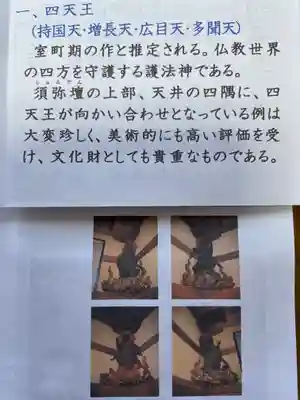 一、四天王
(持国天・増長天・広目天・多聞天)
室町期の作と推定される。仏教世界
の四方を守護する護法神である。
しゅみだん
須弥壇の上部、天井の四隅に、四
天王が向かい合わせとなっている例は
大変珍しく、美術的にも高い評価を受
け、文化財としても貴重なものである。